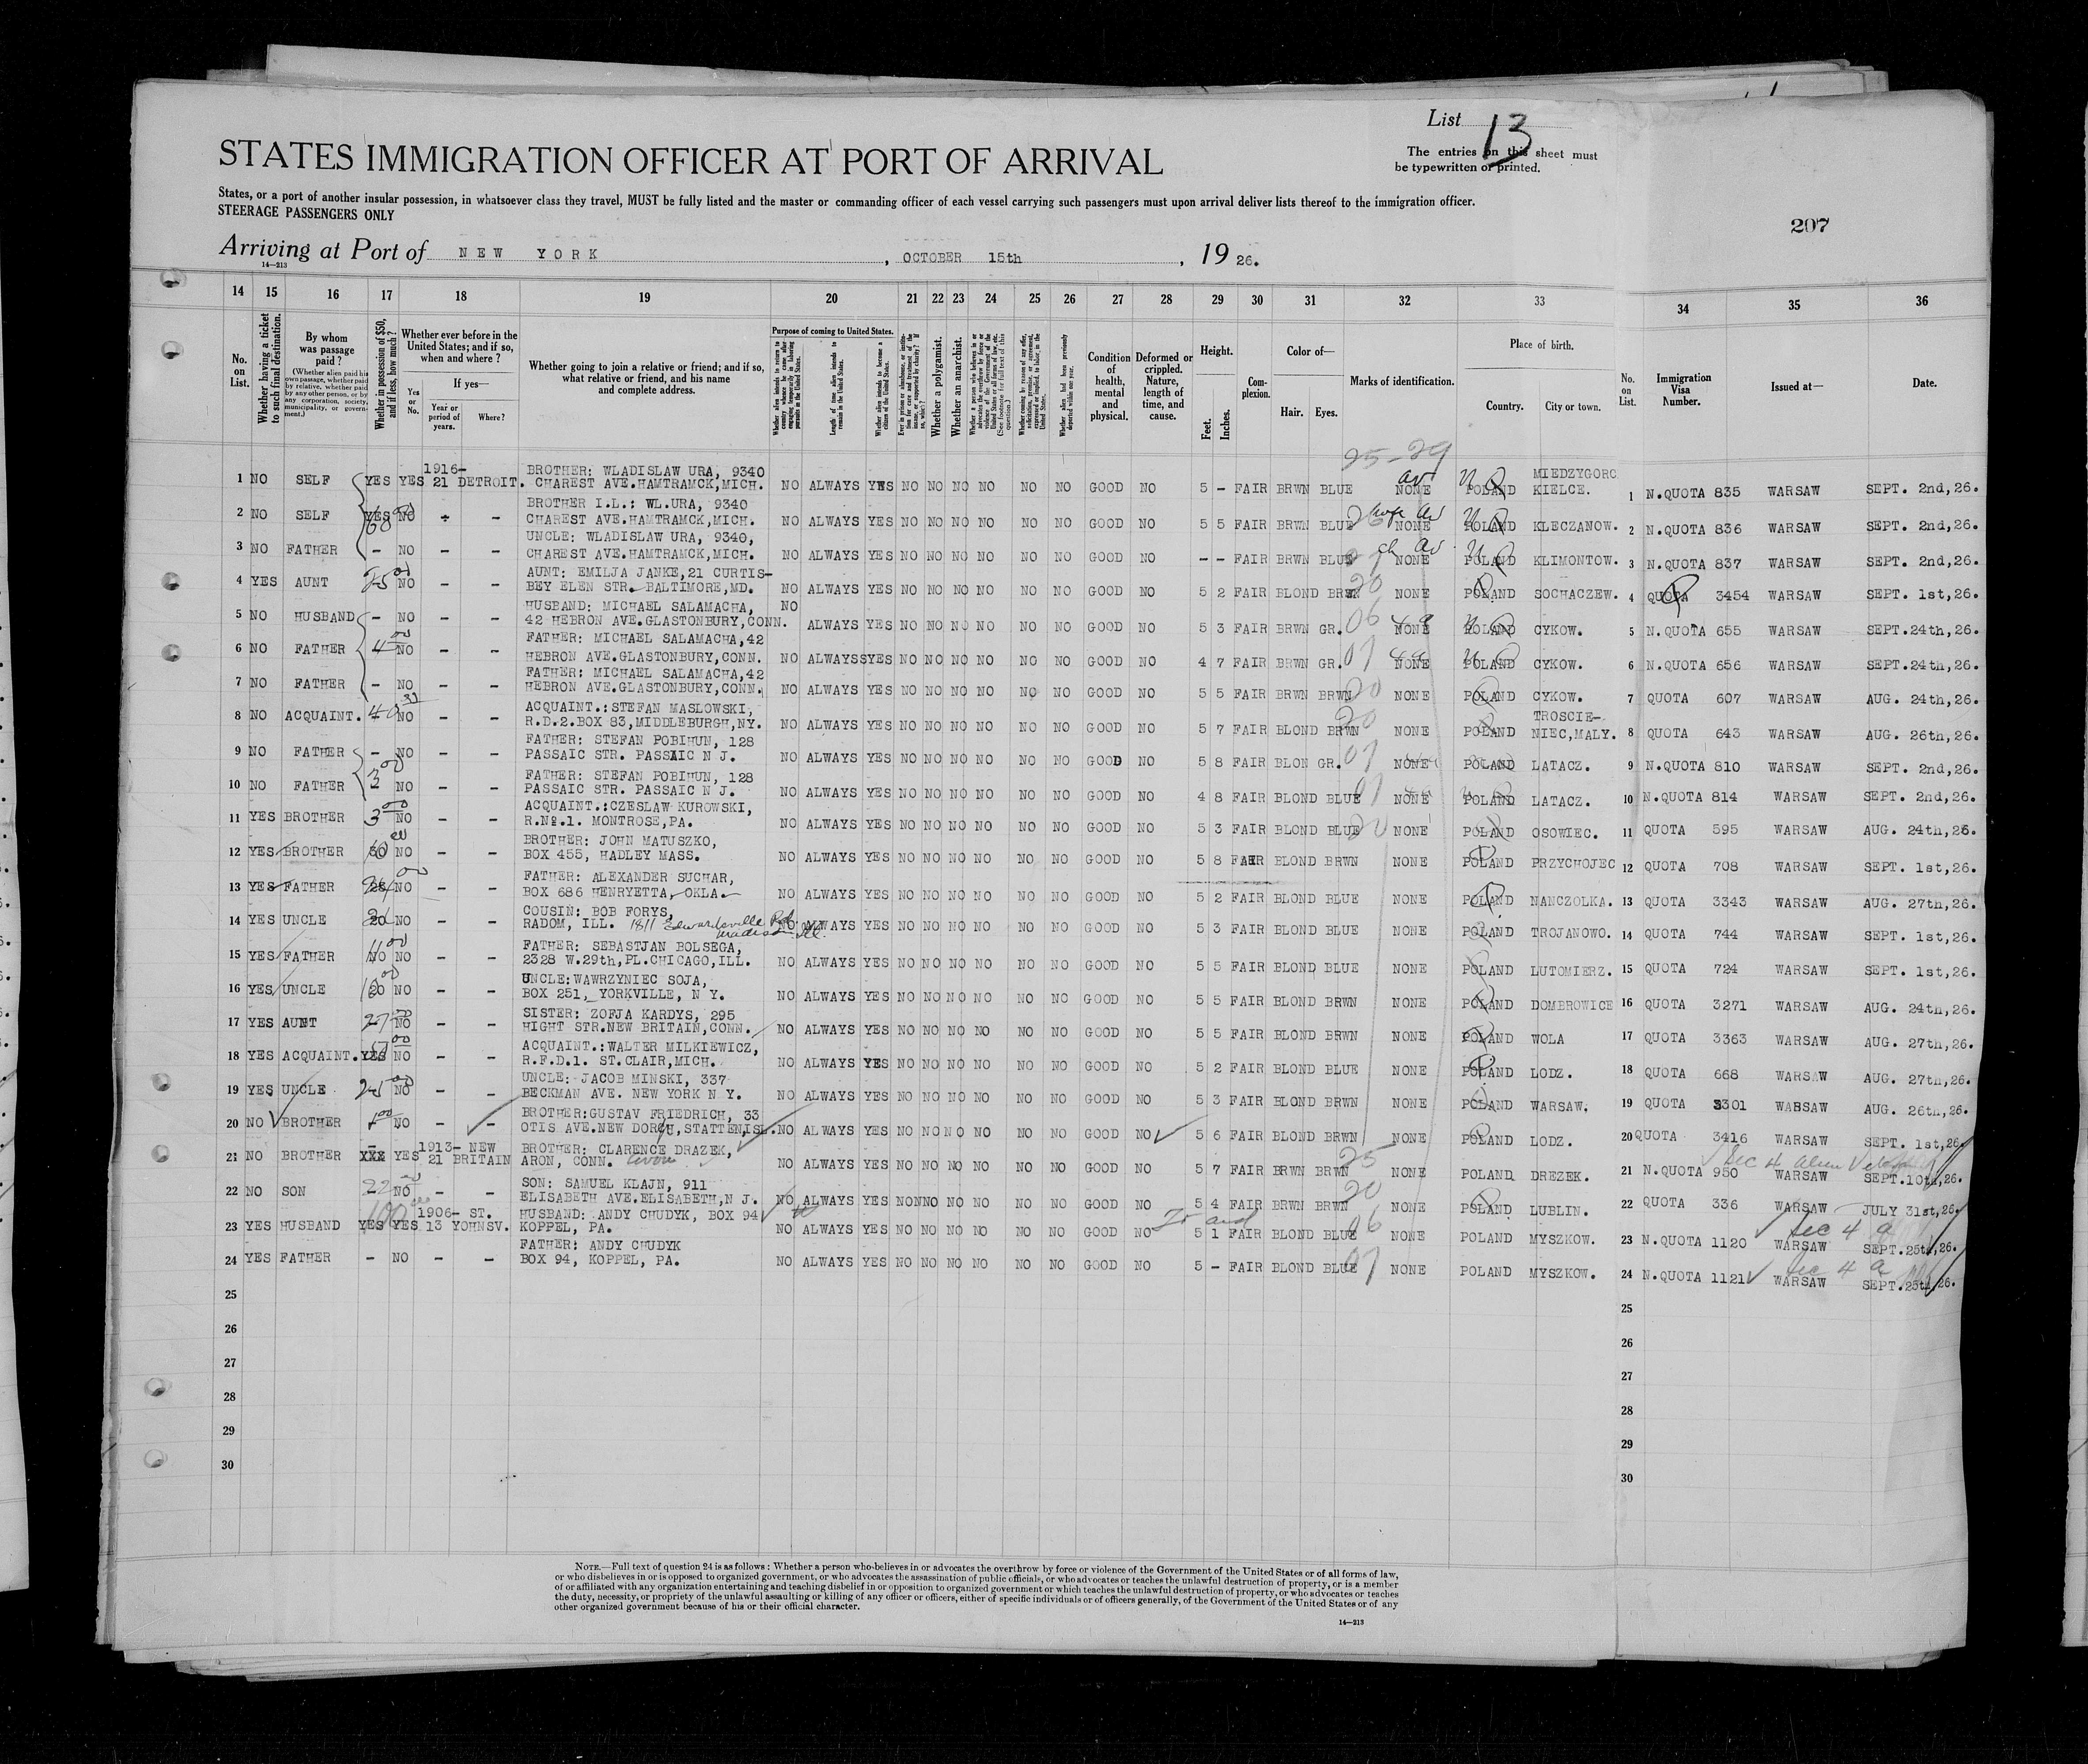 List 13
STATES IMMIGRATION OFFICER AT PORT OF ARRIVAL
The entries on this sheet must
be typewritten or printed.
States, or a port of another insular possession, in whatsoever class they travel, MUST be fully listed and the master or commanding officer of each vessel carrying such passengers must upon arrival deliver lists thereof to the immigration officer.
STEERAGE PASSENGERS ONLY
207
Arriving at Port of NEW YORK, OCTOBER 15th, 19 26.
14—213
14 15 16 17 18 19 20 21 22 23 24 25 26 27 28 29 30 31 32 33 34 35 36
No. on List.
Whether having a ticket to such final destination.
By whom was passage paid?
(Whether alien paid his own passage, whether paid by relative, whether paid by any other person, or by any corporation, society, municipality, or government.)
Whether in possession of $50, and if less, how much?
Whether ever before in the United States; and if so, when and where?
Yes or No.
If yes—
Year or period of years.
Where?
Whether going to join a relative or friend; and if so, what relative or friend, and his name and complete address.
Purpose of coming to United States.
Length of time alien intends to remain in the United States.
Whether alien intends to become a citizen of the United States.
Whether a polygamist.
Whether an anarchist.
Condition of health, mental and physical.
Deformed or crippled. Nature, length of time, and cause.
Height.
Feet. Inches.
Complexion.
Color of—
Hair. Eyes.
Marks of identification.
Place of birth.
Country. City or town.
No. on List.
Immigration Visa Number.
Issued at—
Date.
25-29
1 NO SELF YES YES 1916-21 DETROIT. BROTHER: WLADISLAW URA, 9340 CHAREST AVE.HAMTRAMCK,MICH. NO ALWAYS YES NO NO NO NO NO NO GOOD NO 5 - FAIR BRWN BLUE NONE POLAND MIEDZYGORC KIELCE. 1 N.QUOTA 835 WARSAW SEPT. 2nd,26.
2 NO SELF YES NO - - BROTHER I.L.: WL.URA, 9340 CHAREST AVE.HAMTRAMCK,MICH. NO ALWAYS YES NO NO NO NO NO NO GOOD NO 5 5 FAIR BRWN BLUE NONE POLAND KLECZANOW. 2 N.QUOTA 836 WARSAW SEPT. 2nd,26.
3 NO FATHER - NO - - UNCLE: WLADISLAW URA, 9340, CHAREST AVE.HAMTRAMCK,MICH. NO ALWAYS YES NO NO NO NO NO NO GOOD NO - - FAIR BRWN BLUE NONE POLAND KLIMONTOW. 3 N.QUOTA 837 WARSAW SEPT. 2nd,26.
4 YES AUNT 25 NO - - AUNT: EMILJA JANKE,21 CURTIS-BEY ELEN STR. BALTIMORE,MD. NO ALWAYS YES NO NO NO NO NO NO GOOD NO 5 2 FAIR BLOND BRWN 20 NONE POLAND SOCHACZEW. 4 QUOTA 3454 WARSAW SEPT. 1st,26.
5 NO HUSBAND - NO - - HUSBAND: MICHAEL SALAMACHA, 42 HEBRON AVE.GLASTONBURY,CONN. NO ALWAYS YES NO NO NO NO NO NO GOOD NO 5 3 FAIR BRWN GR. 06 NONE POLAND CYKOW. 5 N.QUOTA 655 WARSAW SEPT.24th,26.
6 NO FATHER 4 NO - - FATHER: MICHAEL SALAMACHA,42 HEBRON AVE.GLASTONBURY,CONN. NO ALWAYSSYES NO NO NO NO NO NO GOOD NO 4 7 FAIR BRWN GR. 07 NONE POLAND CYKOW. 6 N.QUOTA 656 WARSAW SEPT.24th,26.
7 NO FATHER - NO - - FATHER: MICHAEL SALAMACHA,42 HEBRON AVE.GLASTONBURY,CONN. NO ALWAYS YES NO NO NO NO NO NO GOOD NO 5 5 FAIR BRWN BRWN 20 NONE POLAND CYKOW. 7 QUOTA 607 WARSAW AUG. 24th,26.
8 NO ACQUAINT. 40 NO - - ACQUAINT.:STEFAN MASLOWSKI, R.D.2.BOX 83,MIDDLEBURGH,NY. NO ALWAYS YES NO NO NO NO NO NO GOOD NO 5 7 FAIR BLOND BRWN 20 NONE POLAND TROSCIE-NIEC,MALY. 8 QUOTA 643 WARSAW AUG. 26th,26.
9 NO FATHER - NO - - FATHER: STEFAN POBIHUN, 128 PASSAIC STR. PASSAIC N J. NO ALWAYS YES NO NO NO NO NO NO GOOD NO 5 8 FAIR BLON GR. 07 NONE POLAND LATACZ. 9 N.QUOTA 810 WARSAW SEPT. 2nd,26.
10 NO FATHER 3 NO - - FATHER: STEFAN POBIHUN, 128 PASSAIC STR. PASSAIC N J. NO ALWAYS YES NO NO NO NO NO NO GOOD NO 4 8 FAIR BLOND BLUE 07 NONE POLAND LATACZ. 10 N.QUOTA 814 WARSAW SEPT. 2nd,26.
11 YES BROTHER 3 NO - - ACQUAINT.:CZESLAW KUROWSKI, R.Nº.1. MONTROSE,PA. NO ALWAYS YES NO NO NO NO NO NO GOOD NO 5 3 FAIR BLOND BLUE 20 NONE POLAND OSOWIEC. 11 QUOTA 595 WARSAW AUG. 24th,26.
12 YES BROTHER NO - - BROTHER: JOHN MATUSZKO, BOX 455, HADLEY MASS. NO ALWAYS YES NO NO NO NO NO NO GOOD NO 5 8 FAIR BLOND BRWN NONE POLAND PRZYCHOJEC 12 QUOTA 708 WARSAW SEPT. 1st,26.
13 YES FATHER NO - - FATHER: ALEXANDER SUCHAR, BOX 686 HENRYETTA, OKLA. NO ALWAYS YES NO NO NO NO NO NO GOOD NO 5 2 FAIR BLOND BLUE NONE POLAND NANCZOLKA. 13 QUOTA 3343 WARSAW AUG. 27th,26.
14 YES UNCLE 20 NO - - COUSIN: BOB FORYS, RADOM, ILL. 1811 Edwardsville Rd. Madison Ill. NO ALWAYS YES NO NO NO NO NO NO GOOD NO 5 3 FAIR BLOND BLUE NONE POLAND TROJANOWO. 14 QUOTA 744 WARSAW SEPT. 1st,26.
15 YES FATHER NO - - FATHER: SEBASTJAN BOLSEGA, 2328 W.29th,PL.CHICAGO,ILL. NO ALWAYS YES NO NO NO NO NO NO GOOD NO 5 5 FAIR BLOND BLUE NONE POLAND LUTOMIERZ. 15 QUOTA 724 WARSAW SEPT. 1st,26.
16 YES UNCLE NO - - UNCLE:WAWRZYNIEC SOJA, BOX 251, YORKVILLE, N Y. NO ALWAYS YES NO NO NO NO NO NO GOOD NO 5 5 FAIR BLOND BRWN NONE POLAND DOMBROWICE 16 QUOTA 3271 WARSAW AUG. 24th,26.
17 YES AUNT 27 NO - - SISTER: ZOFJA KARDYS, 295 HIGHT STR.NEW BRITAIN,CONN. NO ALWAYS YES NO NO NO NO NO NO GOOD NO 5 5 FAIR BLOND BRWN NONE POLAND WOLA 17 QUOTA 3363 WARSAW AUG. 27th,26.
18 YES ACQUAINT. YES NO - - ACQUAINT.:WALTER MILKIEWICZ, R.F.D.1. ST.CLAIR,MICH. NO ALWAYS YES NO NO NO NO NO NO GOOD NO 5 2 FAIR BLOND BLUE NONE POLAND LODZ. 18 QUOTA 668 WARSAW AUG. 27th,26.
19 YES UNCLE 25 NO - - UNCLE: JACOB MINSKI, 337 BECKMAN AVE. NEW YORK N Y. NO ALWAYS YES NO NO NO NO NO NO GOOD NO 5 3 FAIR BLOND BRWN NONE POLAND WARSAW. 19 QUOTA 3301 WARSAW AUG. 26th,26.
20 NO BROTHER NO - - BROTHER:GUSTAV FRIEDRICH, 33 OTIS AVE.NEW DORP,STATTENISL. NO ALWAYS YES NO NO NO NO NO NO GOOD NO 5 6 FAIR BLOND BRWN NONE POLAND LODZ. 20 QUOTA 3416 WARSAW SEPT. 1st,26.
21 NO BROTHER XXX YES 1913-21 NEW BRITAIN BROTHER: CLARENCE DRAZEK, ARON, CONN. Avon NO ALWAYS YES NO NO NO NO NO NO GOOD NO 5 7 FAIR BRWN BRWN 25 NONE POLAND DREZEK. 21 N.QUOTA 950 WARSAW SEPT.10th,26.
22 NO SON 22 NO - - SON: SAMUEL KLAJN, 911 ELISABETH AVE.ELISABETH,N J. NO ALWAYS YES NONNO NO NO NO NO GOOD NO 5 4 FAIR BRWN BRWN 20 NONE POLAND LUBLIN. 22 QUOTA 336 WARSAW JULY 31st,26.
23 YES HUSBAND YES YES 1906-13 ST. YOHNSV. HUSBAND: ANDY CHUDYK, BOX 94 KOPPEL, PA. NO ALWAYS YES NO NO NO NO NO NO GOOD NO 5 1 FAIR BLOND BLUE 06 NONE POLAND MYSZKOW. 23 N.QUOTA 1120 WARSAW Sec 4 a SEPT.25th,26.
24 YES FATHER - NO - - FATHER: ANDY CHUDYK BOX 94, KOPPEL, PA. NO ALWAYS YES NO NO NO NO NO NO GOOD NO 5 - FAIR BLOND BLUE 07 NONE POLAND MYSZKOW. 24 N.QUOTA 1121 WARSAW Sec 4 a SEPT.25th,26.
25 25
26 26
27 27
28 28
29 29
30 30
NOTE.—Full text of question 24 is as follows: Whether a person who believes in or advocates the overthrow by force or violence of the Government of the United States or of all forms of law,
or who disbelieves in or is opposed to organized government, or who advocates the assassination of public officials, or who advocates or teaches the unlawful destruction of property, or is a member
of or affiliated with any organization entertaining and teaching disbelief in or opposition to organized government or which teaches the unlawful destruction of property, or who advocates or teaches
the duty, necessity, or propriety of the unlawful assaulting or killing of any officer or officers, either of specific individuals or of officers generally, of the Government of the United States or of any
other organized government because of his or their official character.
14—213